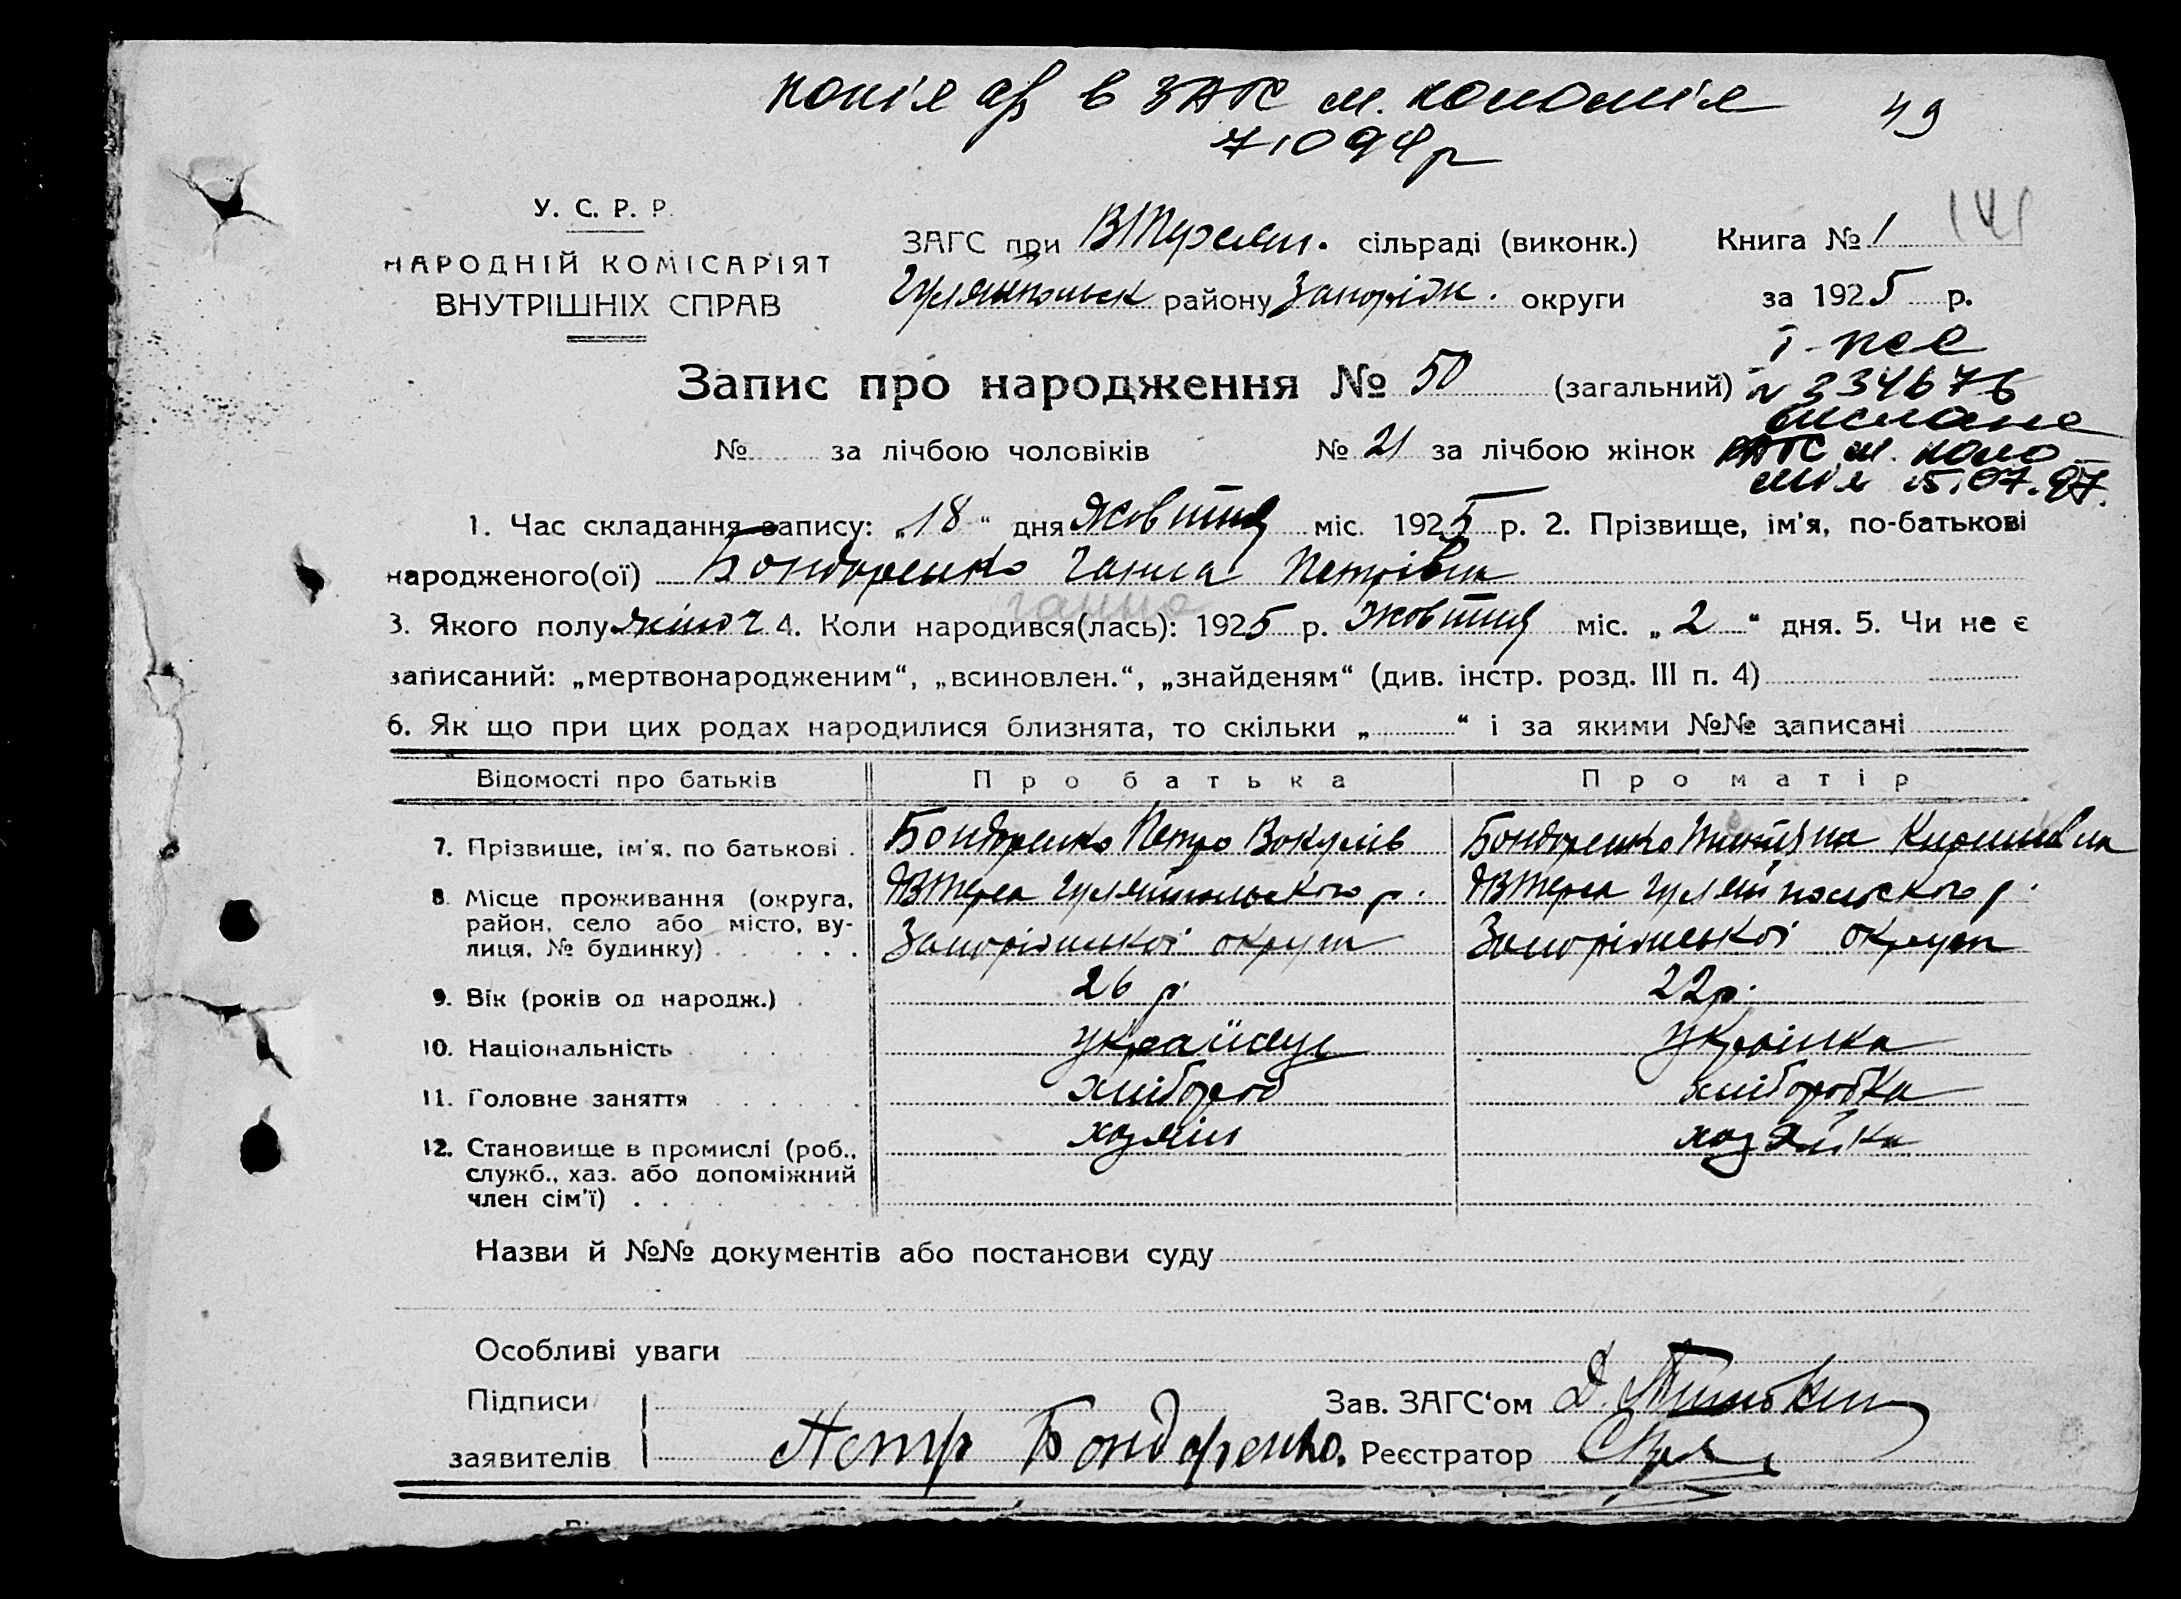 копія а/з в ЗАГС м. Коломия
49
7.10 94 р
У. С. Р. Р.
НАРОДНІЙ КОМІСАРІЯТ
ВНУТРІШНІХ СПРАВ
ЗАГС при ВТерсян. сільраді (виконк.) Книга № 1 141
Гуляйпольськ району Запоріж. округи за 1925 р.
Запис про народження № 50 (загальний)
І-ЖС
№ 334676
вислане
ЗАГС м. Коло
мия 15.07.97.
№ за лічбою чоловіків № 21 за лічбою жінок
1. Час складання запису: „18“ дня Жовтня міс. 1925 р. 2. Прізвище, ім'я, по-батькові
народженого(ої) Бондаренко Ганна Петрівна
ганна
3. Якого полу жіноч 4. Коли народився(лась): 1925 р. Жовтня міс. „2“ дня. 5. Чи не є
записаний: „мертвонародженим“, „всиновлен.“, „знайденям“ (див. інстр. розд. III п. 4)
6. Як що при цих родах народилися близнята, то скільки „ “ і за якими №№ записані
Відомості про батьків Про батька Про матір
7. Прізвище, ім'я, по батькові . Бондаренко Петро Вокулів Бондаренко Титяна Кирилівна
8. Місце проживання (округа, ВТерса Гуляйпольського р. ВТерса Гуляйпольского р.
район, село або місто, ву- Запоріжської округи Запоріжської округи
лиця, № будинку)
9. Вік (років од народж.) 26 р. 22 р.
10. Національність українец Українка
11. Головне заняття хлібороб хліборобка
12. Становище в промислі (роб., хозяїн хозяйка
служб., хаз. або допоміжний
член сім'ї)
Назви й №№ документів або постанови суду
Особливі уваги
Підписи Зав. ЗАГС'ом
заявителів Петр Бондаренко. Реєстратор